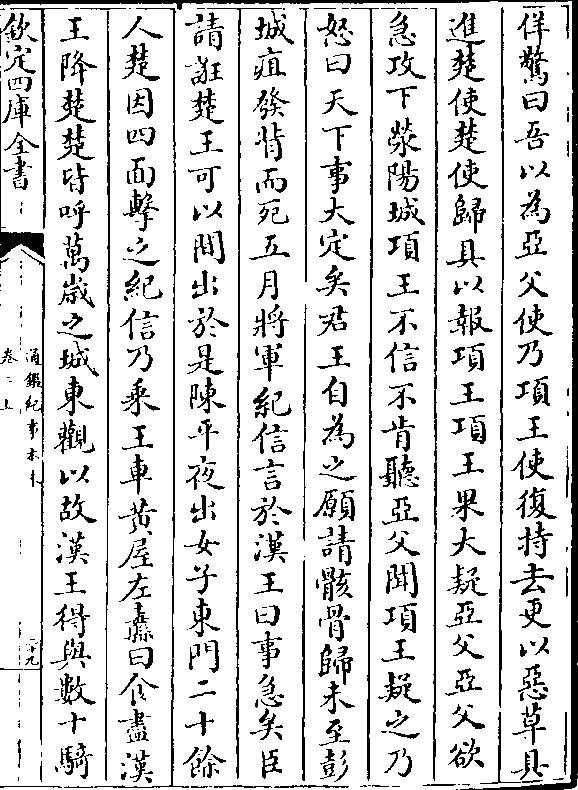 佯驚曰吾以為亞父使乃項王使復持去更以惡草具
進楚使楚使歸具以報項王項王果大疑亞父亞父欲
急攻下滎陽城項王不信不肯聽亞父聞項王疑之乃
怒曰天下事大定矣君王自為之願請骸骨歸未至彭
城疽發背而死五月將軍紀信言於漢王曰事急矣臣
請誑楚王可以間出於是陳平夜出女子東門二十餘
人楚因四面擊之紀信乃乘王車黃屋左纛曰食盡漢
王降楚楚皆呼萬歲之城東觀以故漢王得與數十騎
欽定四庫全書
通鑑紀事本末
卷二上
二十九